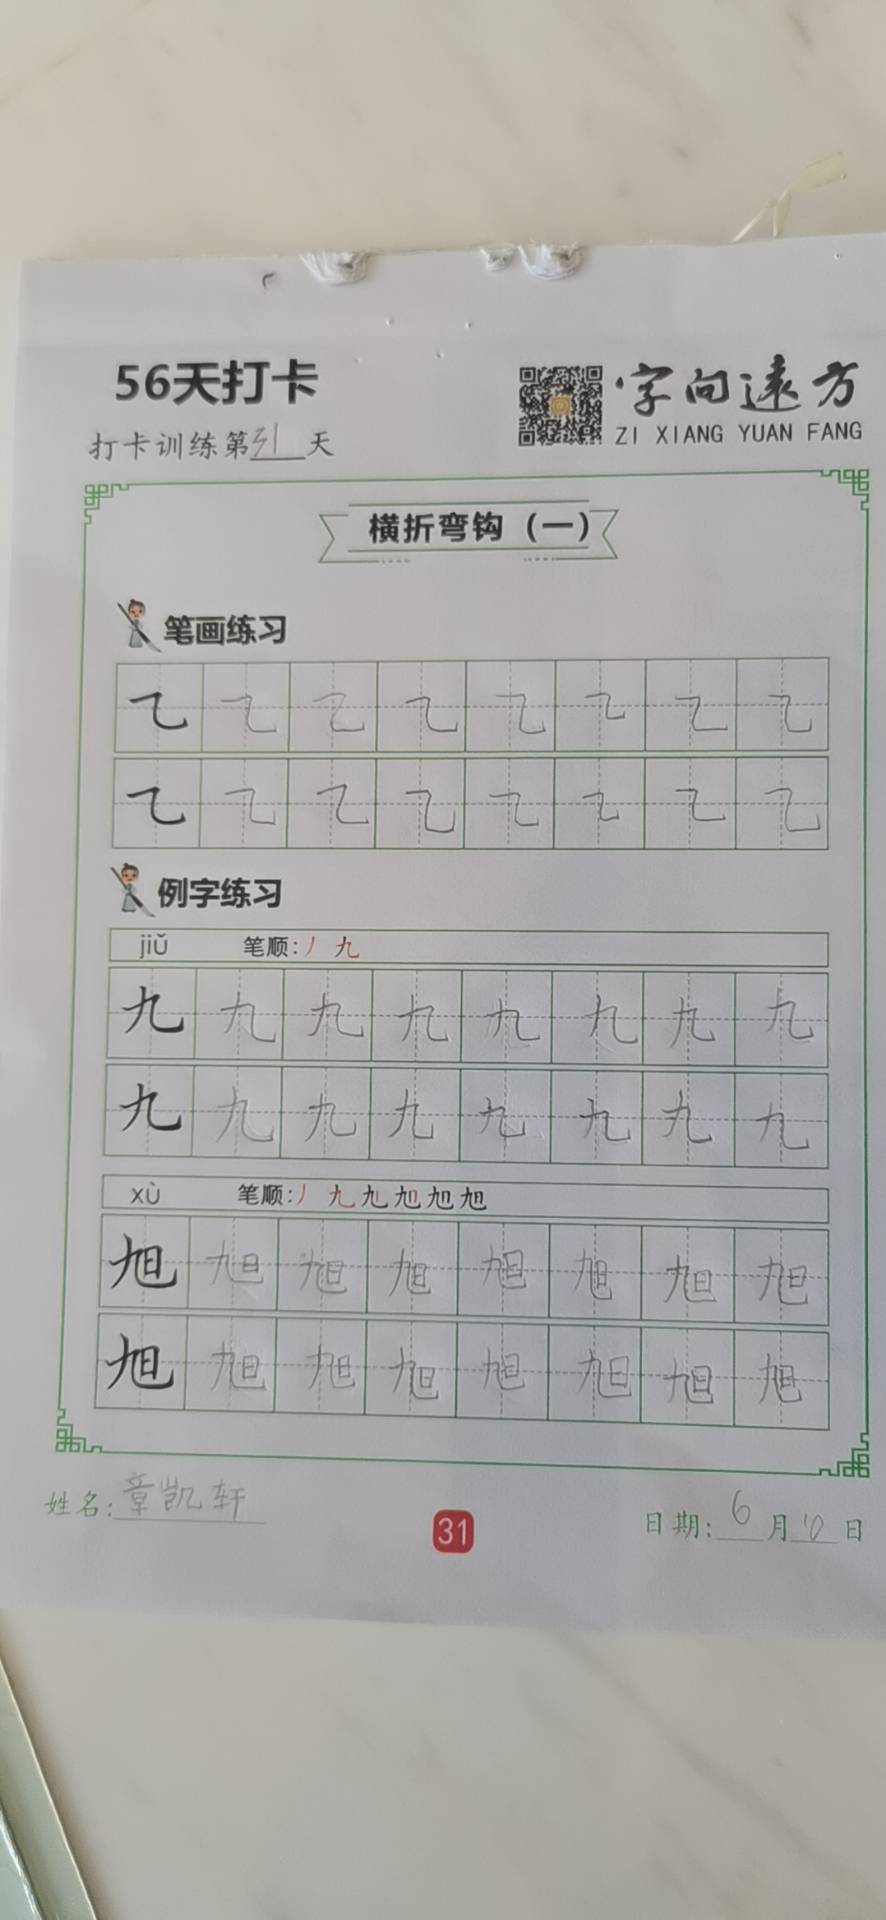 56天打卡
字向远方
打卡训练第31天
ZI XIANG YUAN FANG
横折弯钩（一）
笔画练习
㇈ ㇈ ㇈ ㇈ ㇈ ㇈ ㇈ ㇈
㇈ ㇈ ㇈ ㇈ ㇈ ㇈ ㇈ ㇈
例字练习
jiǔ 笔顺:丿 九
九 九 九 九 九 九 九 九
九 九 九 九 九 九 九 九
xù 笔顺:丿 九 旭 旭 旭
旭 旭 旭 旭 旭 旭 旭 旭
旭 旭 旭 旭 旭 旭 旭 旭
姓名:章凯轩
31
日期:6月10日